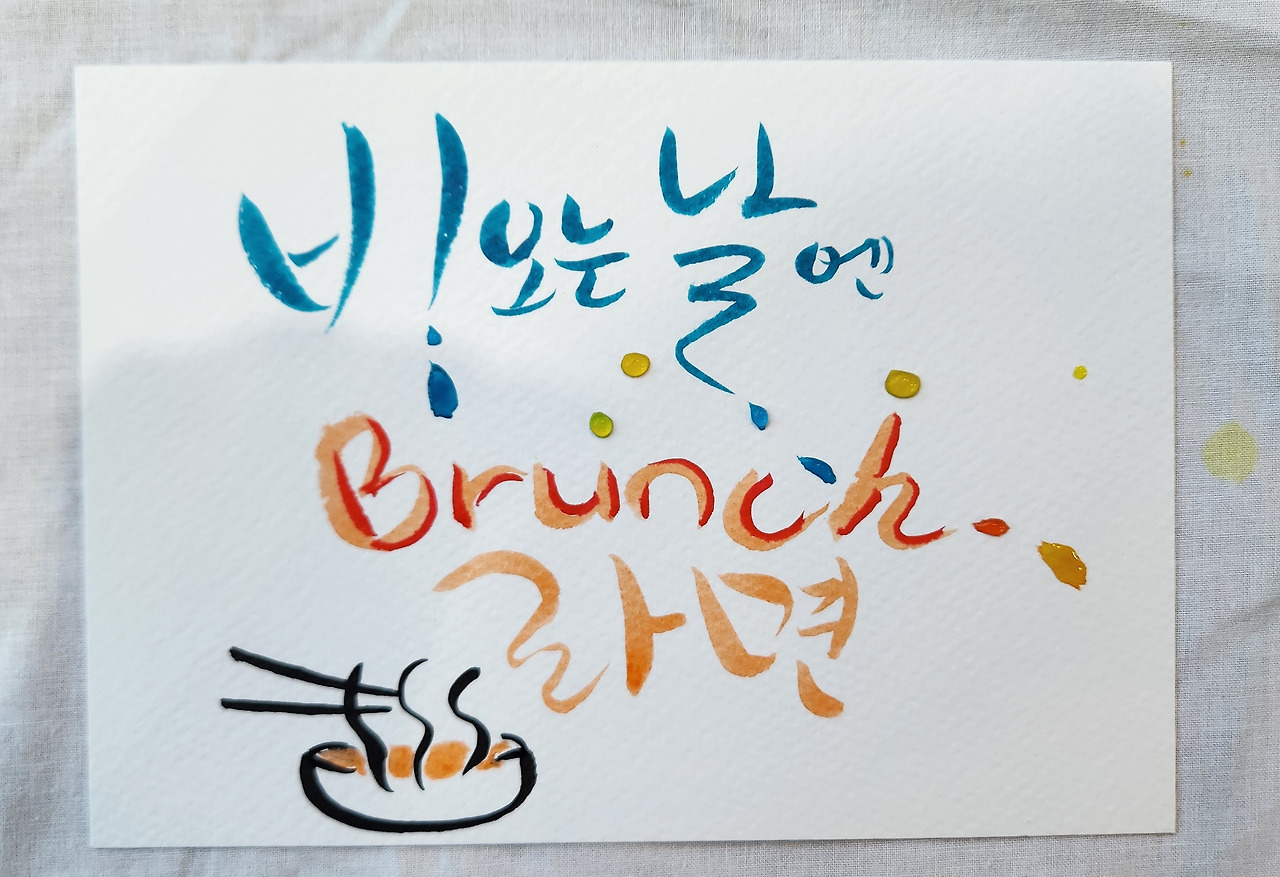 비 오는 날엔
Brunch
라면